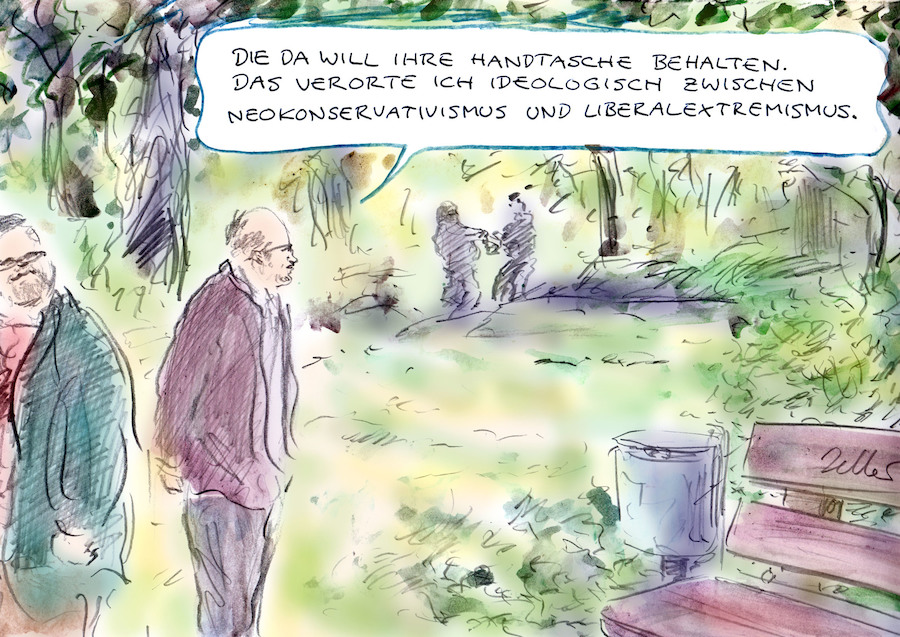 DIE DA WILL IHRE HANDTASCHE BEHALTEN.
DAS VERORTE ICH IDEOLOGISCH ZWISCHEN
NEOKONSERVATIVISMUS UND LIBERALEXTREMISMUS.
Zeller